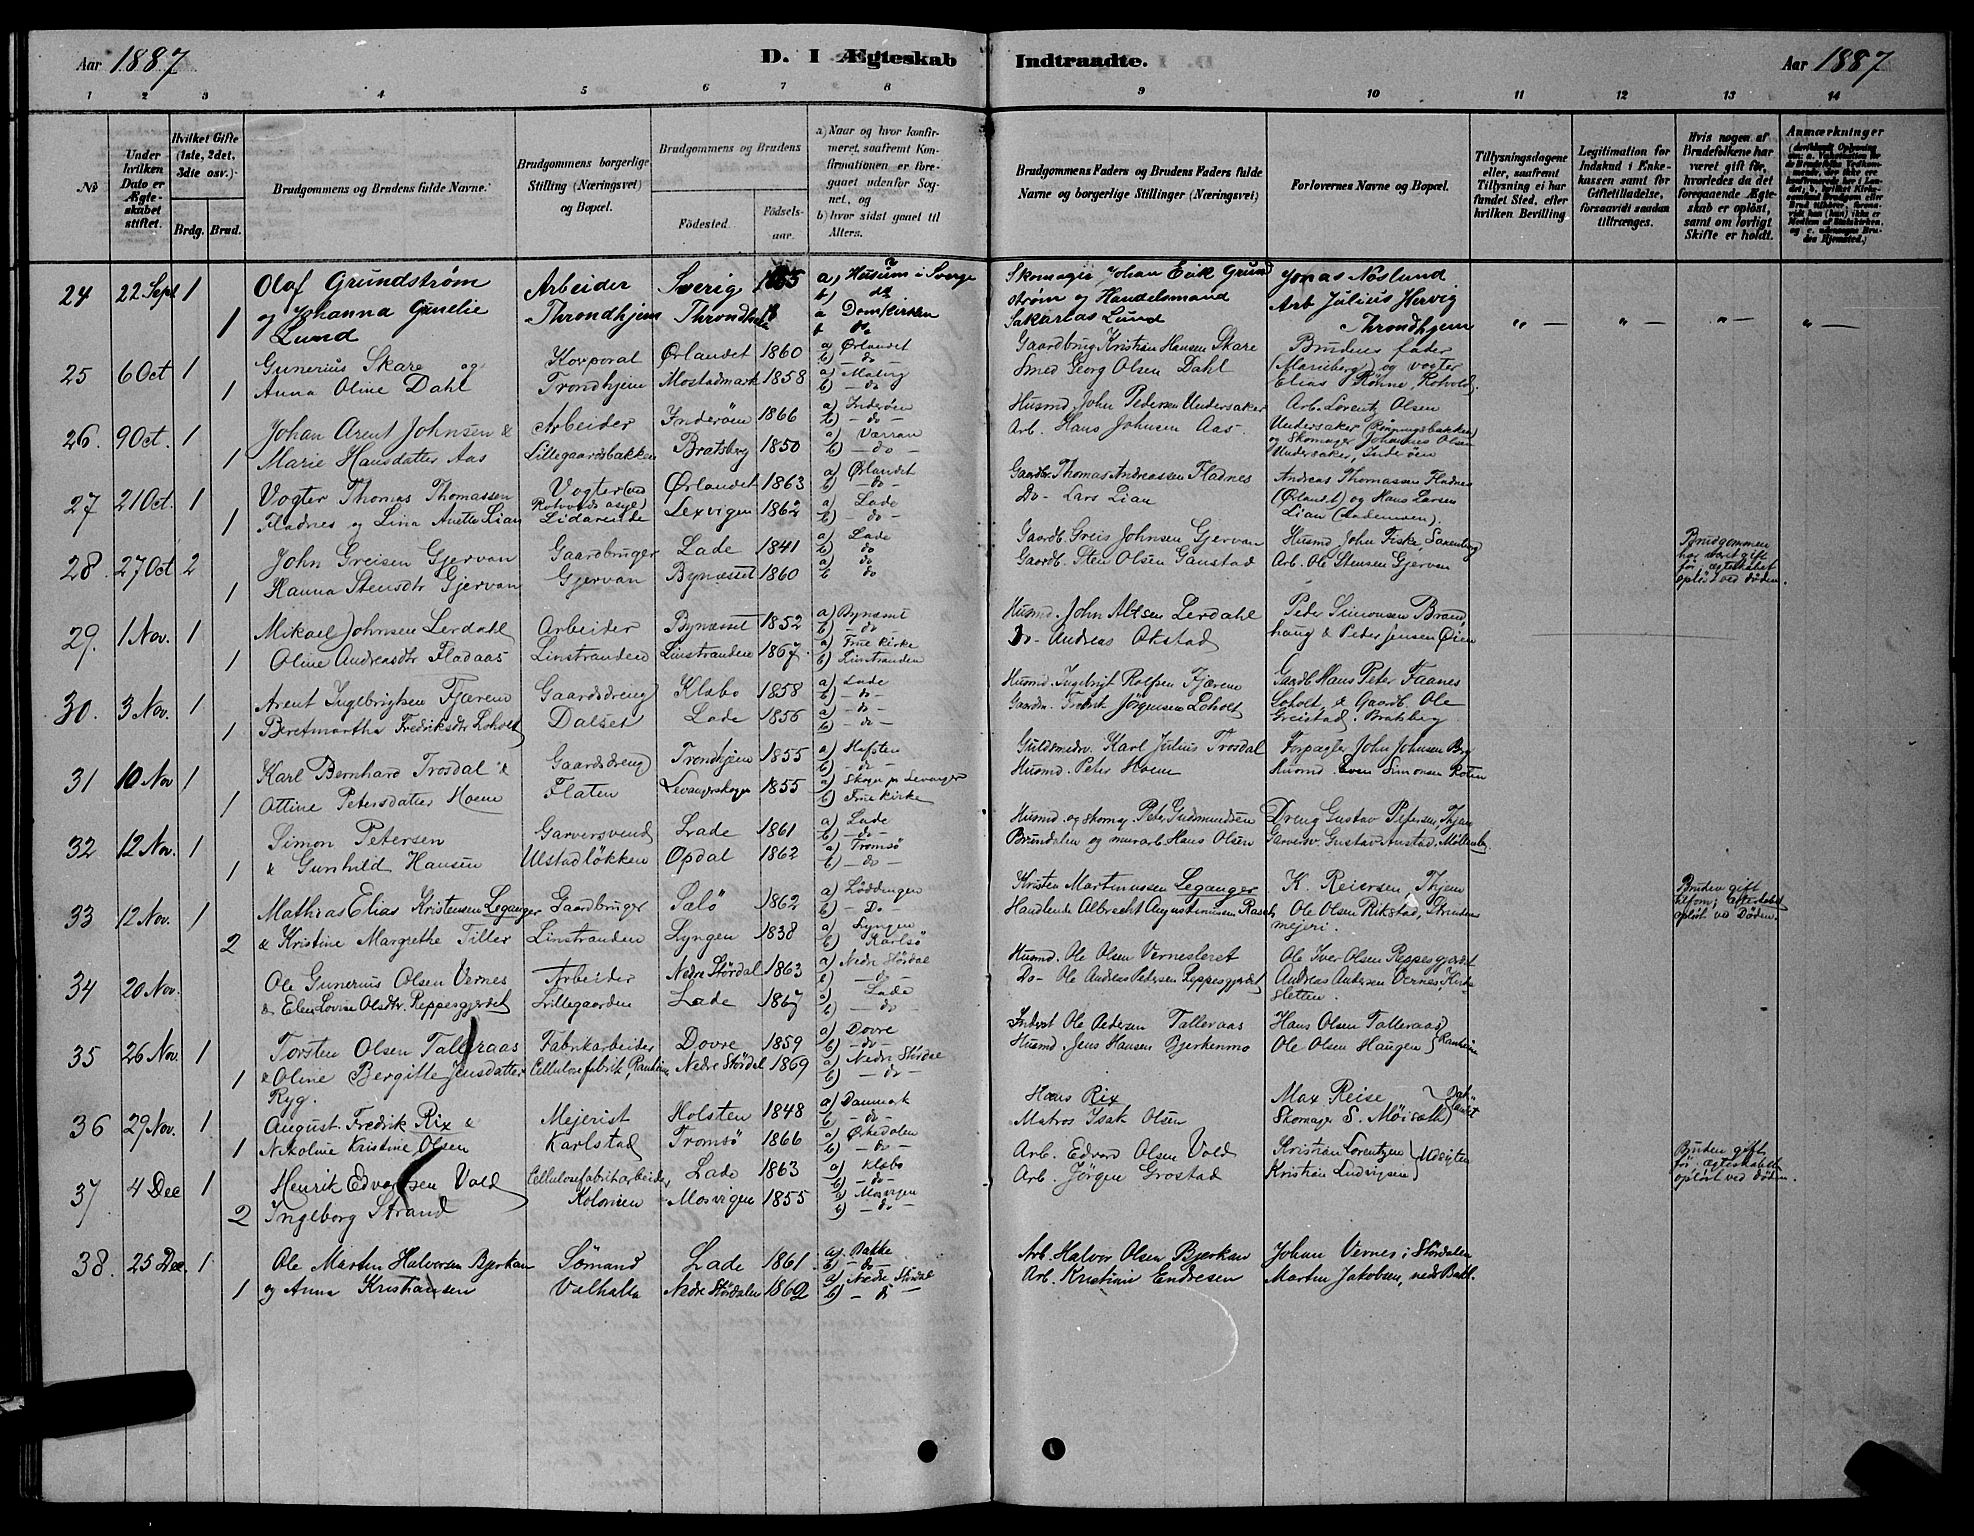 Aar 1887
D. I Ægteskab Indtraadte.
Aar 1887
1 2 3 4 5 6 7 8 9 10 11 12 13 14
No
Under hvilken Dato er Ægteskabet stiftet.
Hvilket Gifte (1ste, 2det, 3die osv.)
Brdg. Brud.
Brudgommens og Brudens fulde Navne.
Brudgommens borgerlige Stilling (Næringsvei) og Bopæl.
Brudgommens og Brudens
Fødested.
Fødselsaar.
a) Naar og hvor konfirmeret, saafremt Konfirmationen er foregaaet udenfor Sognet, og
b) hvor sidst gaaet til Alters.
Brudgommens Faders og Brudens Faders fulde Navne og borgerlige Stillinger (Næringsvei)
Forlovernes Navne og Bopæl.
Tillysningsdagene eller, saafremt Tillysning ei har fundet Sted, efter hvilken Bevilling.
Legitimation for Indskud i Enkekassen samt for Giftetilladelse, forsaavidt saadan tiltrænges.
Hvis nogen af Brudefolkene har været gift før, hvorledes da det foregaaende Ægteskab er opløst, samt om lovligt Skifte er holdt.
Anmærkninger
24 22 Sept 1 Olaf Grundstrøm Arbeider Sverig a) Husum i Sverge Skomager Johan Erik Grund Jonas Nöslund
b) do strøm og Handelsmand Arb Julius Hervig
1 og Johanna Gunelie Throndhjem a Domkirken Sakarias Lund Throndhjem " — " — " — " —
Lund b do
25 6 Oct 1 Gunerius Skare og Korporal Ørlandet 1860 a) Ørlandet b) — do Gaardbrug Kristian Hansen Skare Brudens fader
1 Anna Oline Dahl Trondhjem Mostadmark 1858 a) b) — do Smed Georg Olsen Dahl (Marieberg) og vogter
Elias Rönne, Rotvold
26. 9 Oct. 1 Johan Arent Johnsen & Arbeider Inderöen 1866 a) Inderöen b) — do — Husmd John Pedersen Undersaker Arb. Lorentz Olsen
1 Marie Hansdatter Aas Lillegaardsbakken Bratsberg 1850 a) Værran b) — do — Arb. Hans Johnsen Aas. Undersaker
og Skomager Johannes Olsen
Undersaker, Inderöen
27 21 Oct. 1 Vogter Thomas Thomassen Vogter Ørlandet 1863 a) Ørlandet b) — do — Gaardbr Thomas Andreassen Fladnes Andreas Thomassen Fladnes
1 Fladnes og Lina Anette Lian Rotvolds asyl Lexvigen 1862 a) Lade b) — do Do — Lars Lian (Ørlandet) og Hans Larsen
Lian (Lademoen).
28. 27 Oct 2 John Greisen Gjervan Gaardbruger Lade 1841 a) Lade b) do Gaardb. Greis Johnsen Gjervan Husmd John Fiske, Saxenberg Brudgommen
har vært gift
før, ægteskabet
opløst ved døden.
1 Hanna Stensdtr Gjervan Gjervan Bynæsset 1860 a) do b do Gaardb. Sten Olsen Ganstad Arb. Ole Stensen Gjervan
29. 1 Nov. 1 Mikael Johnsen Lerdahl Arbeider Bynæsset 1852 a) Bynæsset b) — do Husmd. John Lerdahl Peder Simonsen Brand
1 Oline Andreasdtr Fladaas Linstranden Linstranden 1867. a) Frue kirke b) Linstranden Do — Andreas Okstad haug & Peter Jensen Øien
30. 3 Nov. 1 Arent Ingebrigtsen Fjærem Gaardsdreng Klæbo 1858 a) Lade b) — do — Husmd. Ingebrigt Rolfsen Fjærem Gaardb. Hans Peter Faanes
1 Beretmartha Fredriksdtr Loholt Dalset Lade 1856 a) — do — b) — do — Gaardm. Fredrik Jörgensen Loholt Loholt & Gaardb. Ole
Greistad. Bratsberg
31 10 Nov 1 Karl Bernhard Trosdal & Gaardsdreng Trondhjem 1855 a) Hafsten b) — do — Guldsmedsv. Karl Julius Trosdal Forpagter John Johnsen Brg
1 Ottine Petersdatter Hoem Flaten Levangerskogn 1855 a) Skogn pr Levanger b) Frue kirke Husmd. Peter Hoem Husmd Even Simonsen Roten
32 12 Nov. 1 Simon Petersen Garversvend Lade 1861 a) Lade b) — do — Husmd. og skomg Peter Gudmundsen Dreng Gustav Petersen, Thjem
1 & Gunhild Hansen Ulstadløkken Opdal 1862 a) Tromsö b) — do — Brundalen og murarb. Hans Olsen Garversv. Gustav Austad, Möllenbg.
33 12 Nov. 1 Mathias Elias Kristensen Leganger Gaardbruger Salö 1862 a) Löddingen b) — Do Kristen Martinussen Leganger K. Reiersen, Thjem Bruden gift
tilforn; ægteskabet
opløst ved Døden.
2 & Kristine Margrethe Tiller Linstranden Lyngen 1838 a) Lyngen b) Karlsö Handlende Albrecht Augustinussen Rasch, Ole Olsen Rikstad, Strinden
mejeri.
34 20 Nov. Ole Gunerius Olsen Vernes Arbeider Nedre Stördal 1863 a) Nedre Stördal b) — do — Husmd. Ole Olsen Verneslvret Ole Iver Olsen Reppesgjerdet
& Elen Lovise Olsdtr. Reppesgjerdet Lillegaarden Lade 1867 a) Lade b) — do — Do — Ole Andreas Pedersen Reppesgjerdet Andreas Andersen Vernes, Kirke
sletten.
35 26 Nov. 1 Torsten Olsen Talleraas Fabrikarbeider Dovre 1859 a) Dovre b) — do — Indvst Ole Pedersen Talleraas Hans Olsen Talleraas
1 & Oline Bergitte Jensdatter Cellulosefabrik, Ranheim Nedre Stördal 1869 a) Nedre Stördal b) — do — Husmd. Jens Hansen Bjerkenmo Ole Olsen Haugen Ranheim
Ryg.
36 29 Nov. 1 August Fredrik Rix & Mejerist Holsten 1848 a) Danmark b) — do — Hans Rix Max Reise
1 Nikoline Kristine Olsen Karlstad Tromsö 1866 a) Orkedalen b) — do Matros Isak Olsen Skomager S. Möisath
37. 4 Dec 1 Henrik Edvardsen Vold Cellulosefabrikarbeider Lade 1863 a) Klæbo b) — do — Arb. Edvard Olsen Vold Kristian Lorentzen Bruden gift
før, ægteskabet
opløst ved døden.
2 Ingeborg Strand Kolonien Mosvigen 1855 a) Mosvigen b) — do — Arb. Jörgen Grostad Kristian Ludvigsen
38. 25 Dec. 1 Ole Martin Halvorsen Bjerkan Sömand Lade 1861. a) Bakke b) — do — Arb. Halvor Olsen Bjerkan Johan Vernes i Stördalen
1 og Anna Kristiansen Valhalla Nedre Stördalen 1862 a) Nedre Stördal b) — do — Arb. Kristian Endresen Martin Jakobsen, nedre Bakl.